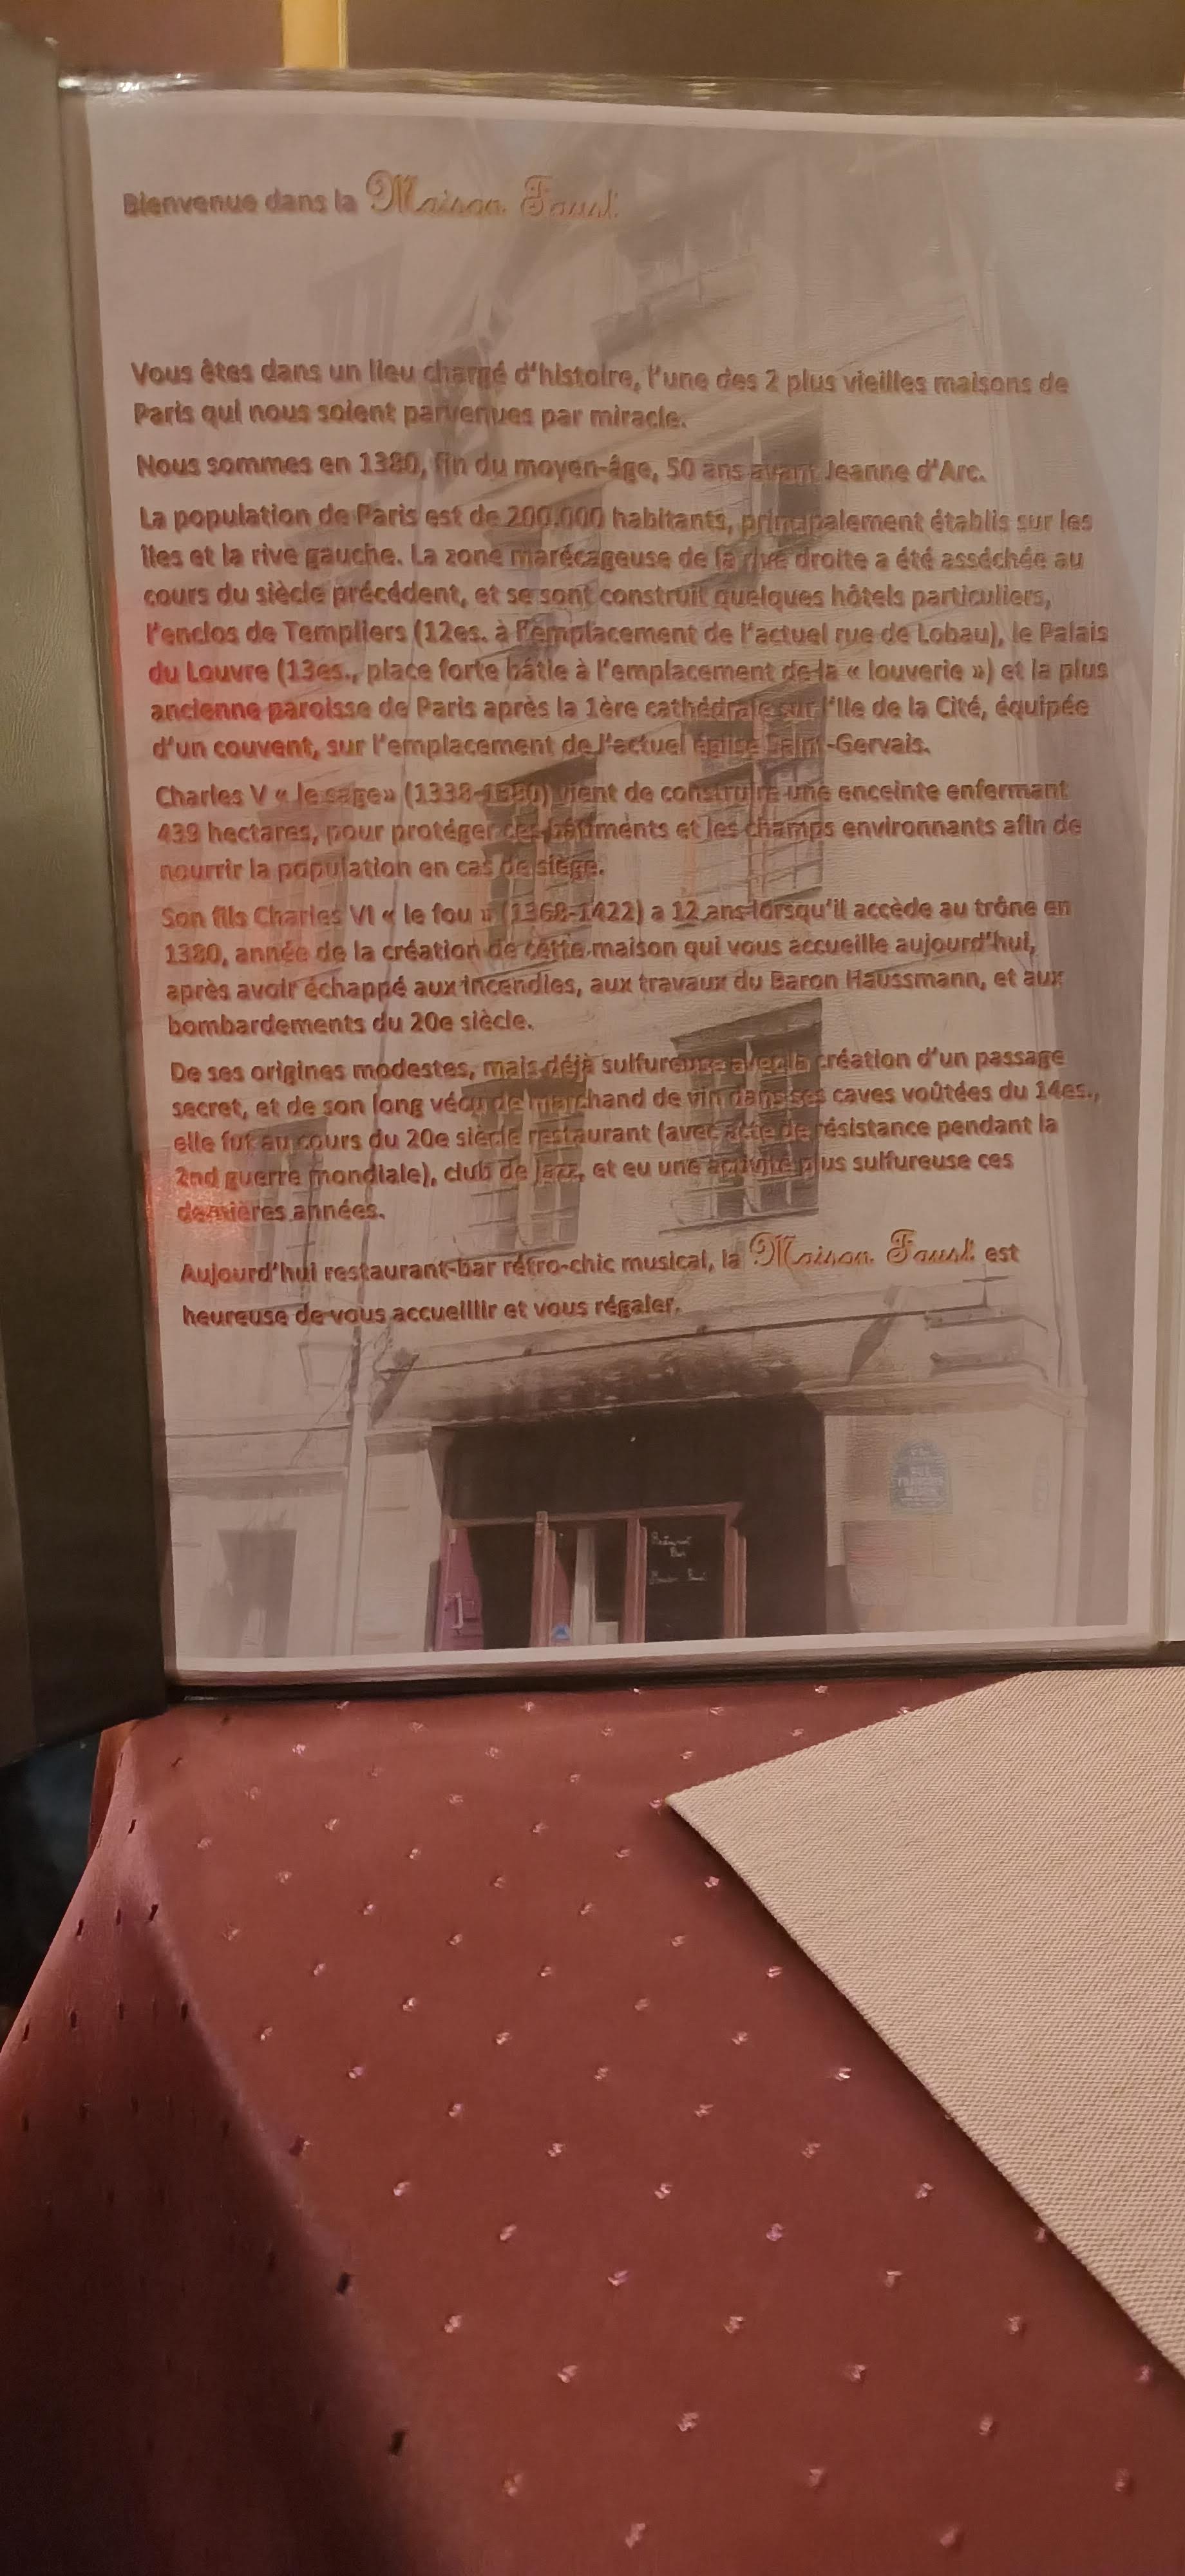 Bienvenue dans la Maison Faust
Vous êtes dans un lieu chargé d'histoire, l'une des 2 plus vieilles maisons de
Paris qui nous soient parvenues par miracle.
Nous sommes en 1380, fin du moyen-âge, 50 ans avant Jeanne d'Arc.
La population de Paris est de 200.000 habitants, principalement établis sur les
îles et la rive gauche. La zone marécageuse de la rive droite a été asséchée au
cours du siècle précédent, et se sont construit quelques hôtels particuliers,
l'enclos de Templiers (12es. à l'emplacement de l'actuel rue de Lobau), le Palais
du Louvre (13es., place forte bâtie à l'emplacement de la « louverie ») et la plus
ancienne paroisse de Paris après la 1ère cathédrale sur l'Ile de la Cité, équipée
d'un couvent, sur l'emplacement de l'actuel église Saint-Gervais.
Charles V « le sage» (1338-1380) vient de construire une enceinte enfermant
439 hectares, pour protéger ces bâtiments et les champs environnants afin de
nourrir la population en cas de siège.
Son fils Charles VI « le fou » (1368-1422) a 12 ans lorsqu'il accède au trône en
1380, année de la création de cette maison qui vous accueille aujourd'hui,
après avoir échappé aux incendies, aux travaux du Baron Haussmann, et aux
bombardements du 20e siècle.
De ses origines modestes, mais déjà sulfureuse avec la création d'un passage
secret, et de son long vécu de marchand de vin dans ses caves voûtées du 14es.,
elle fut au cours du 20e siècle restaurant (avec acte de résistance pendant la
2nd guerre mondiale), club de jazz, et eu une activité plus sulfureuse ces
dernières années.
Aujourd'hui restaurant-bar rétro-chic musical, la Maison Faust est
heureuse de vous accueillir et vous régaler.
RUE
FRANÇOIS
MIRON
Restaurant
Bar
Maison Faust